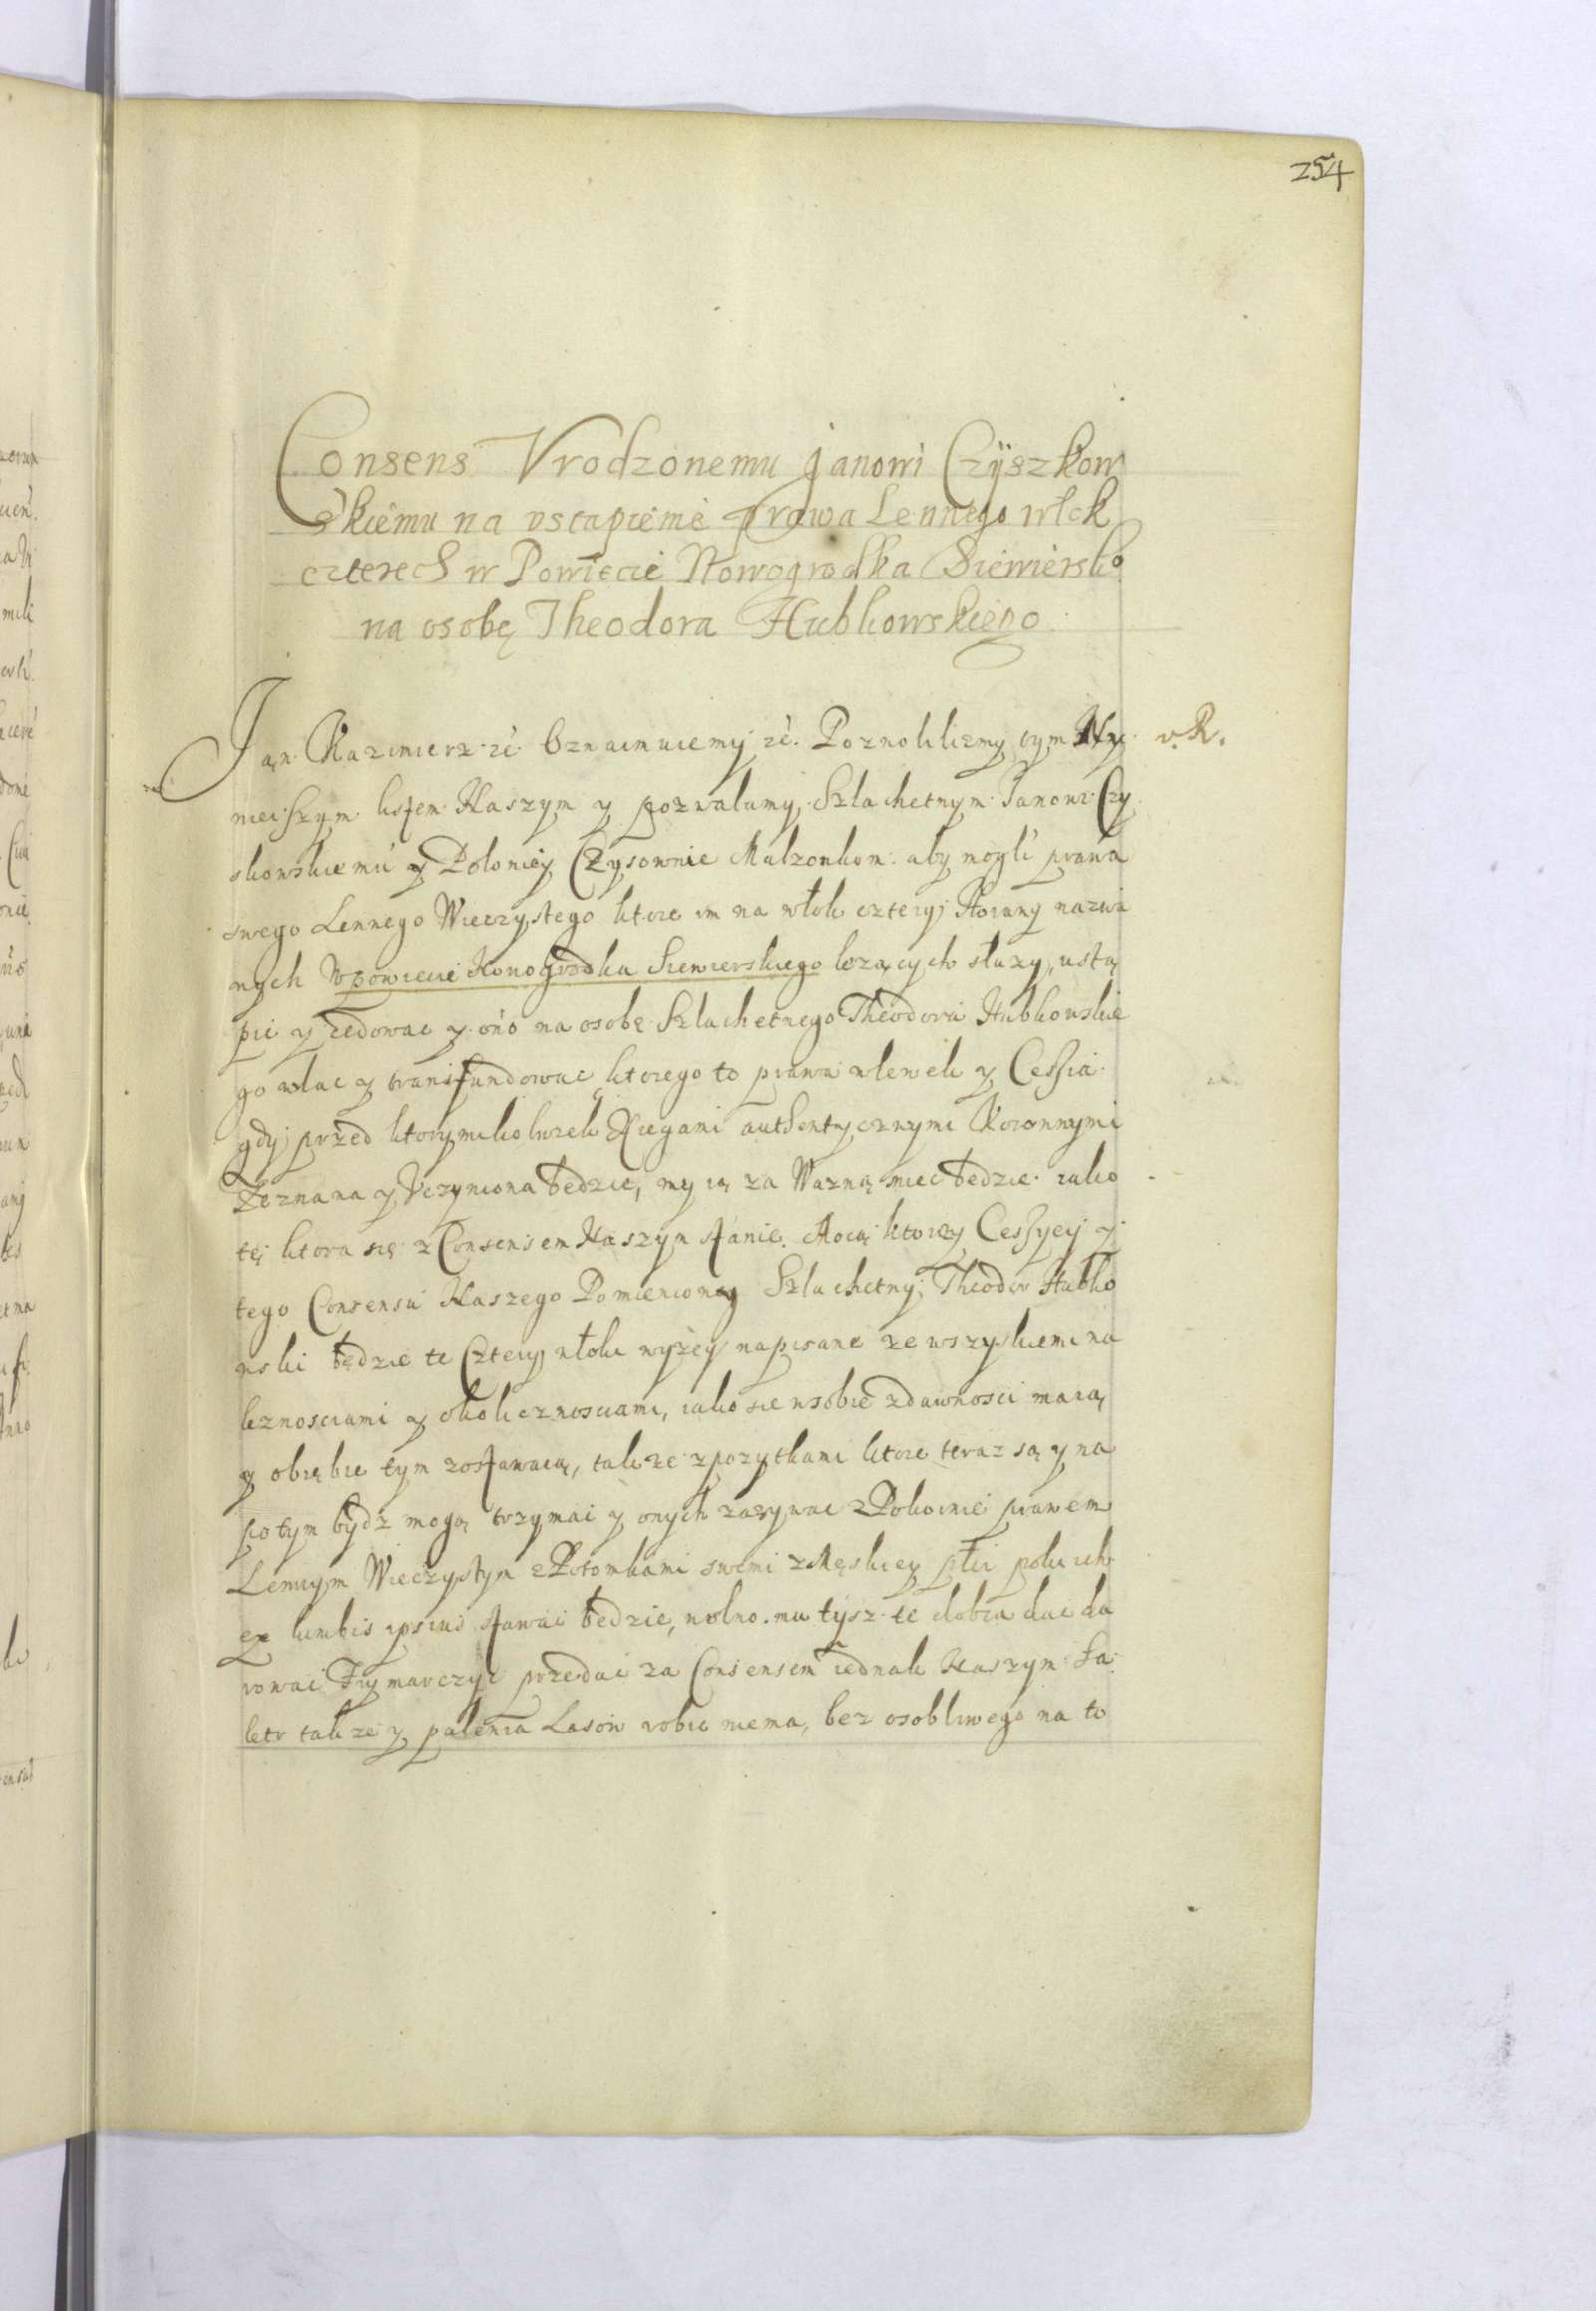 254
Consens Vrodzonemu Janowi Czÿszkow
skiemu na vstapienie prawa Lennego włok
czterech w Powiecie Nowogrodka Siewiersko
na osobę Theodora Hubkowskiego
Jan Kazimierz etc Oznaimuiemy etc. Pozwolilizmy tym Ny v. R.
nieiszym listem Naszym y pozwalamy Szlachetnym Janowi Czy
skowskiemu y Poloniey Czysownie Malzonkom aby mogli prawa
swego Lennego Wieczystego ktore im na włok cztery nazwa
nych W powiecie Nowogrodka Siewierskiego lezących słuzy, ustą
pic y cedowac y ono na osobę Szlachetnego Theodora Hubkowskie
go wlac y transfundowac ktorego to prawa wlewek y Cessia
gdy przed ktorymikolwiek Xiegami authentycznymi Koronnymi
Zeznana y Vczyniona bedzie, my ią za Wazną miec bedzie iako
tę ktora się z Consensem Naszym stanie. Mocą ktorey Cessyey y
tego Consensu Naszego Pomieniony Szlachetny Theodor Hubko
wski będzie te Cztery włoki wyżey napisane ze wszyskiemi na
leznosciami y okolicznosciami, iako sie w sobie zdawnosci maią
y obrębie tym zostawaią, takze z pozytkami ktore teraz są y na
potym bydz mogą trzymac y onych zazywac Spokoinie prawem
Lennym Wieczystym z Potomkami swemi z Męskiey płci poki ich
ex lumbis ipsius stawac bedzie, wolno mu tysz te dobra dac da
rowac Frymarczyc przedac za Consensem iednak Naszym Sa
letr takze y palenia Lasow robic niema, bez osobliwego na to